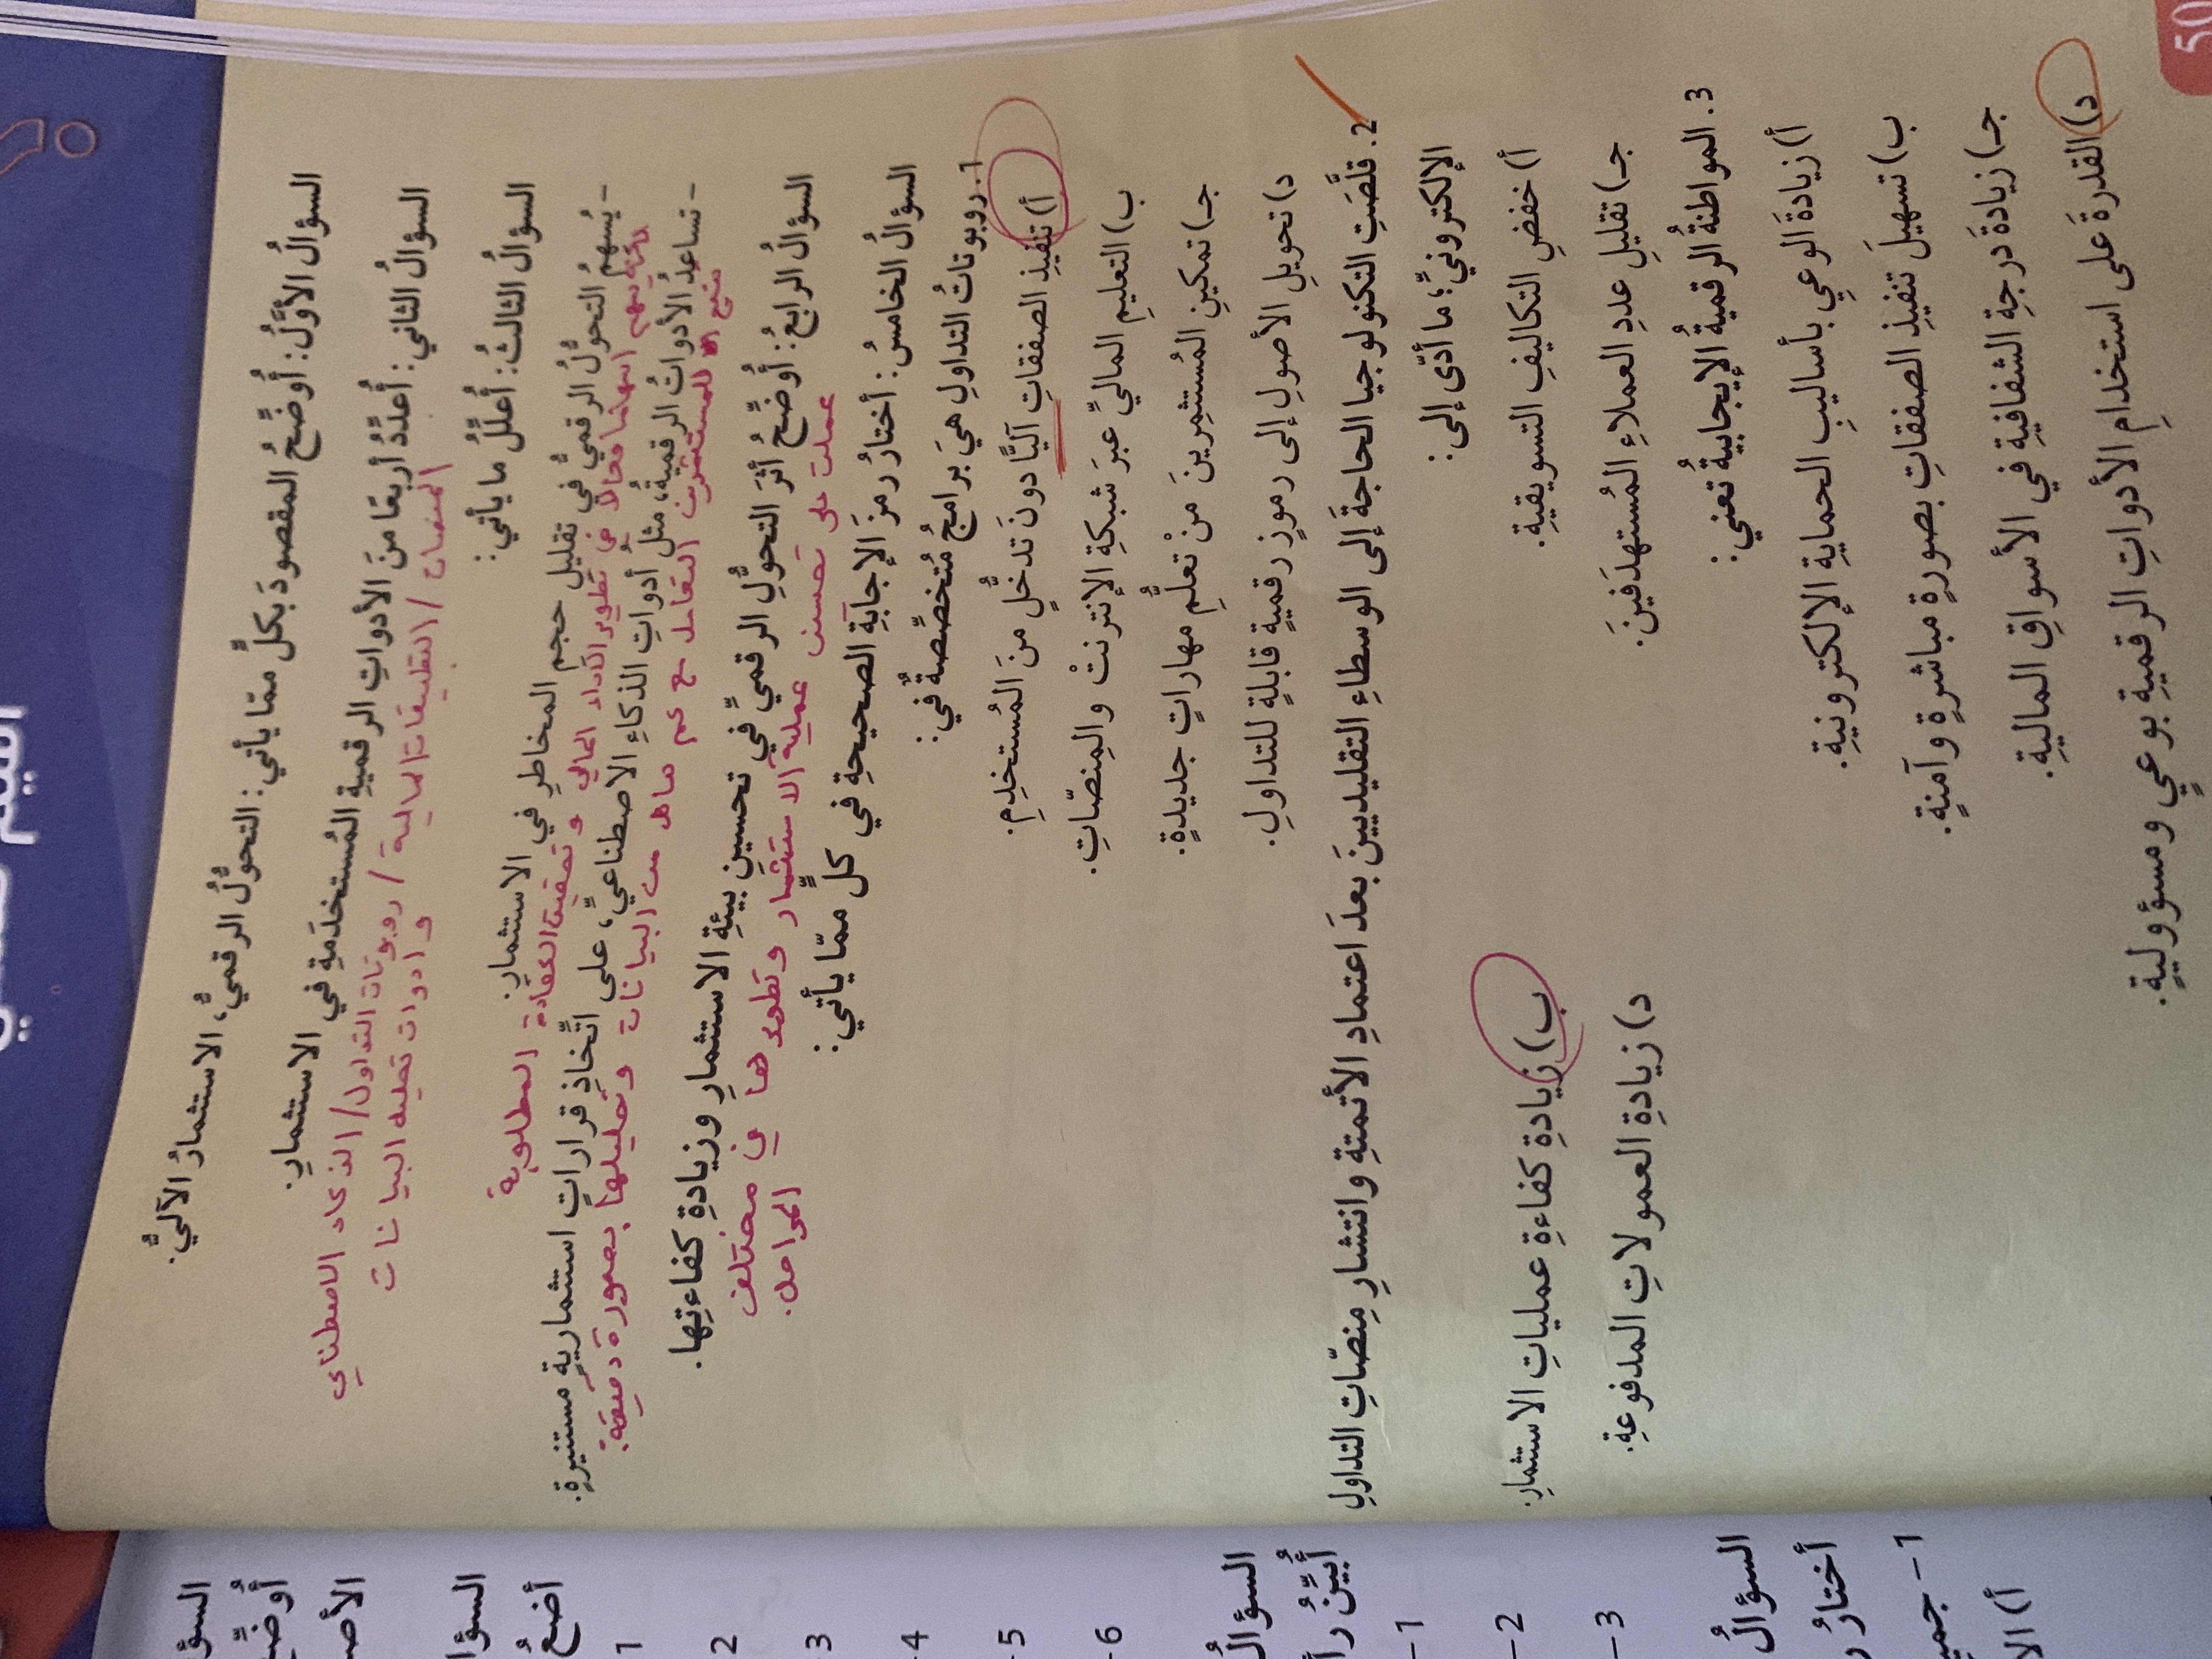 السؤالُ الأوَّلُ: أُوَضِّحُ المقصودَ بكلٍّ ممّا يأتي: التحوُّلُ الرقميُّ، الاستثمارُ الآليُّ.
السؤالُ الثاني: أُعدِّدُ أربعًا منَ الأدواتِ الرقميةِ المُستخدَمةِ في الاستثمارِ.
المنصات / التطبيقات المالية / روبوتات التداول / الذكاء الاصطناعي
وادوات تحليل البيانات
السؤالُ الثالثُ: أُعلِّلُ ما يأتي:
- يُسهِمُ التحوُّلُ الرقميُّ في تقليلِ حجمِ المخاطرِ في الاستثمارِ.
يسهم اسهاما فعالا في تطوير الأداء المالي وتحقيق الكفاءة المطلوبة
- تساعدُ الأدواتُ الرقميةُ، مثلُ أدواتِ الذكاءِ الاصطناعيِّ، على اتِّخاذِ قراراتٍ استثماريةٍ مستنيرةٍ.
للمستثمرين التعامل مع كم هائل من البيانات وتحليلها بصورة دقيقة.
السؤالُ الرابعُ: أُوَضِّحُ أثرَ التحوُّلِ الرقميِّ في تحسينِ بيئةِ الاستثمارِ وزيادةِ كفاءتِها.
عملت على تحسين عملية الاستثمار وتطويرها في مختلف
المراحل.
السؤالُ الخامسُ: أختارُ رمزَ الإجابةِ الصحيحةِ في كلٍّ ممّا يأتي:
1. روبوتاتُ التداولِ هيَ برامجُ مُتخصِّصةٌ في:
أ) تنفيذِ الصفقاتِ آليًّا دونَ تدخُّلٍ منَ المُستخدِمِ.
ب) التعليمِ الماليِّ عبرَ شبكةِ الإنترنتْ والمِنصّاتِ.
جـ) تمكينِ المُستثمِرينَ منْ تعلُّمِ مهاراتٍ جديدةٍ.
د) تحويلِ الأصولِ إلى رموزٍ رقميةٍ قابلةٍ للتداولِ.
2. قلَّصَتِ التكنولوجيا الحاجةَ إلى الوسطاءِ التقليديينَ بعدَ اعتمادِ الأتمتةِ وانتشارِ مِنصّاتِ التداولِ
الإلكترونيِّ؛ ما أدّى إلى:
أ) خفضِ التكاليفِ التسويقيةِ. ب) زيادةِ كفاءةِ عملياتِ الاستثمارِ.
جـ) تقليلِ عددِ العملاءِ المُستهدَفينَ. د) زيادةِ العمولاتِ المدفوعةِ.
3. المواطنةُ الرقميةُ الإيجابيةُ تعني:
أ) زيادةَ الوعيِ بأساليبِ الحمايةِ الإلكترونيةِ.
ب) تسهيلَ تنفيذِ الصفقاتِ بصورةٍ مباشرةٍ وآمنةٍ.
جـ) زيادةَ درجةِ الشفافيةِ في الأسواقِ الماليةِ.
د) القدرةَ على استخدامِ الأدواتِ الرقميةِ بوعيٍ ومسؤوليةٍ.
50
السؤ
أُوَضِّ
الأص
السؤا
أضعُ
1
2
3
4
5
6
السؤالُ
أُبيِّنُ رأ
1-
2-
3-
السؤالُ
أختارُ ر
1- جميـ
أ) الا